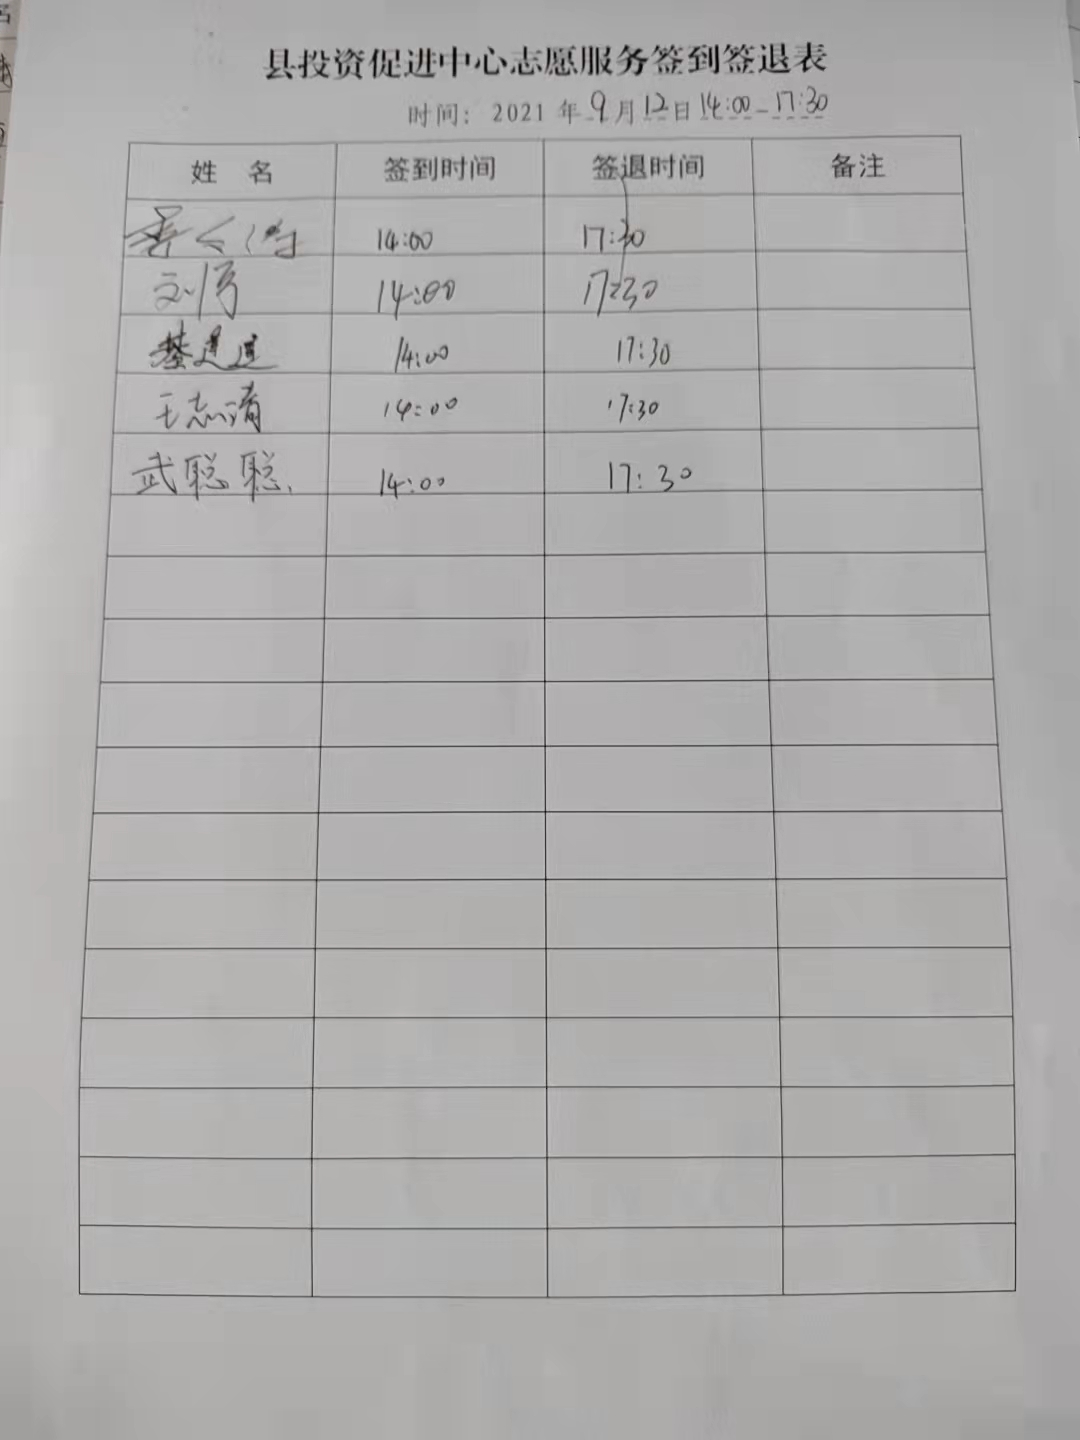 县投资促进中心志愿服务签到签退表
时间: 2021 年 9 月 12 日 14:00-17:30
姓 名 签到时间 签退时间 备注
14:00 17:30
刘 14:00 17:30
14:00 17:30
王志清 14:00 17:30
武聪聪 14:00 17:30